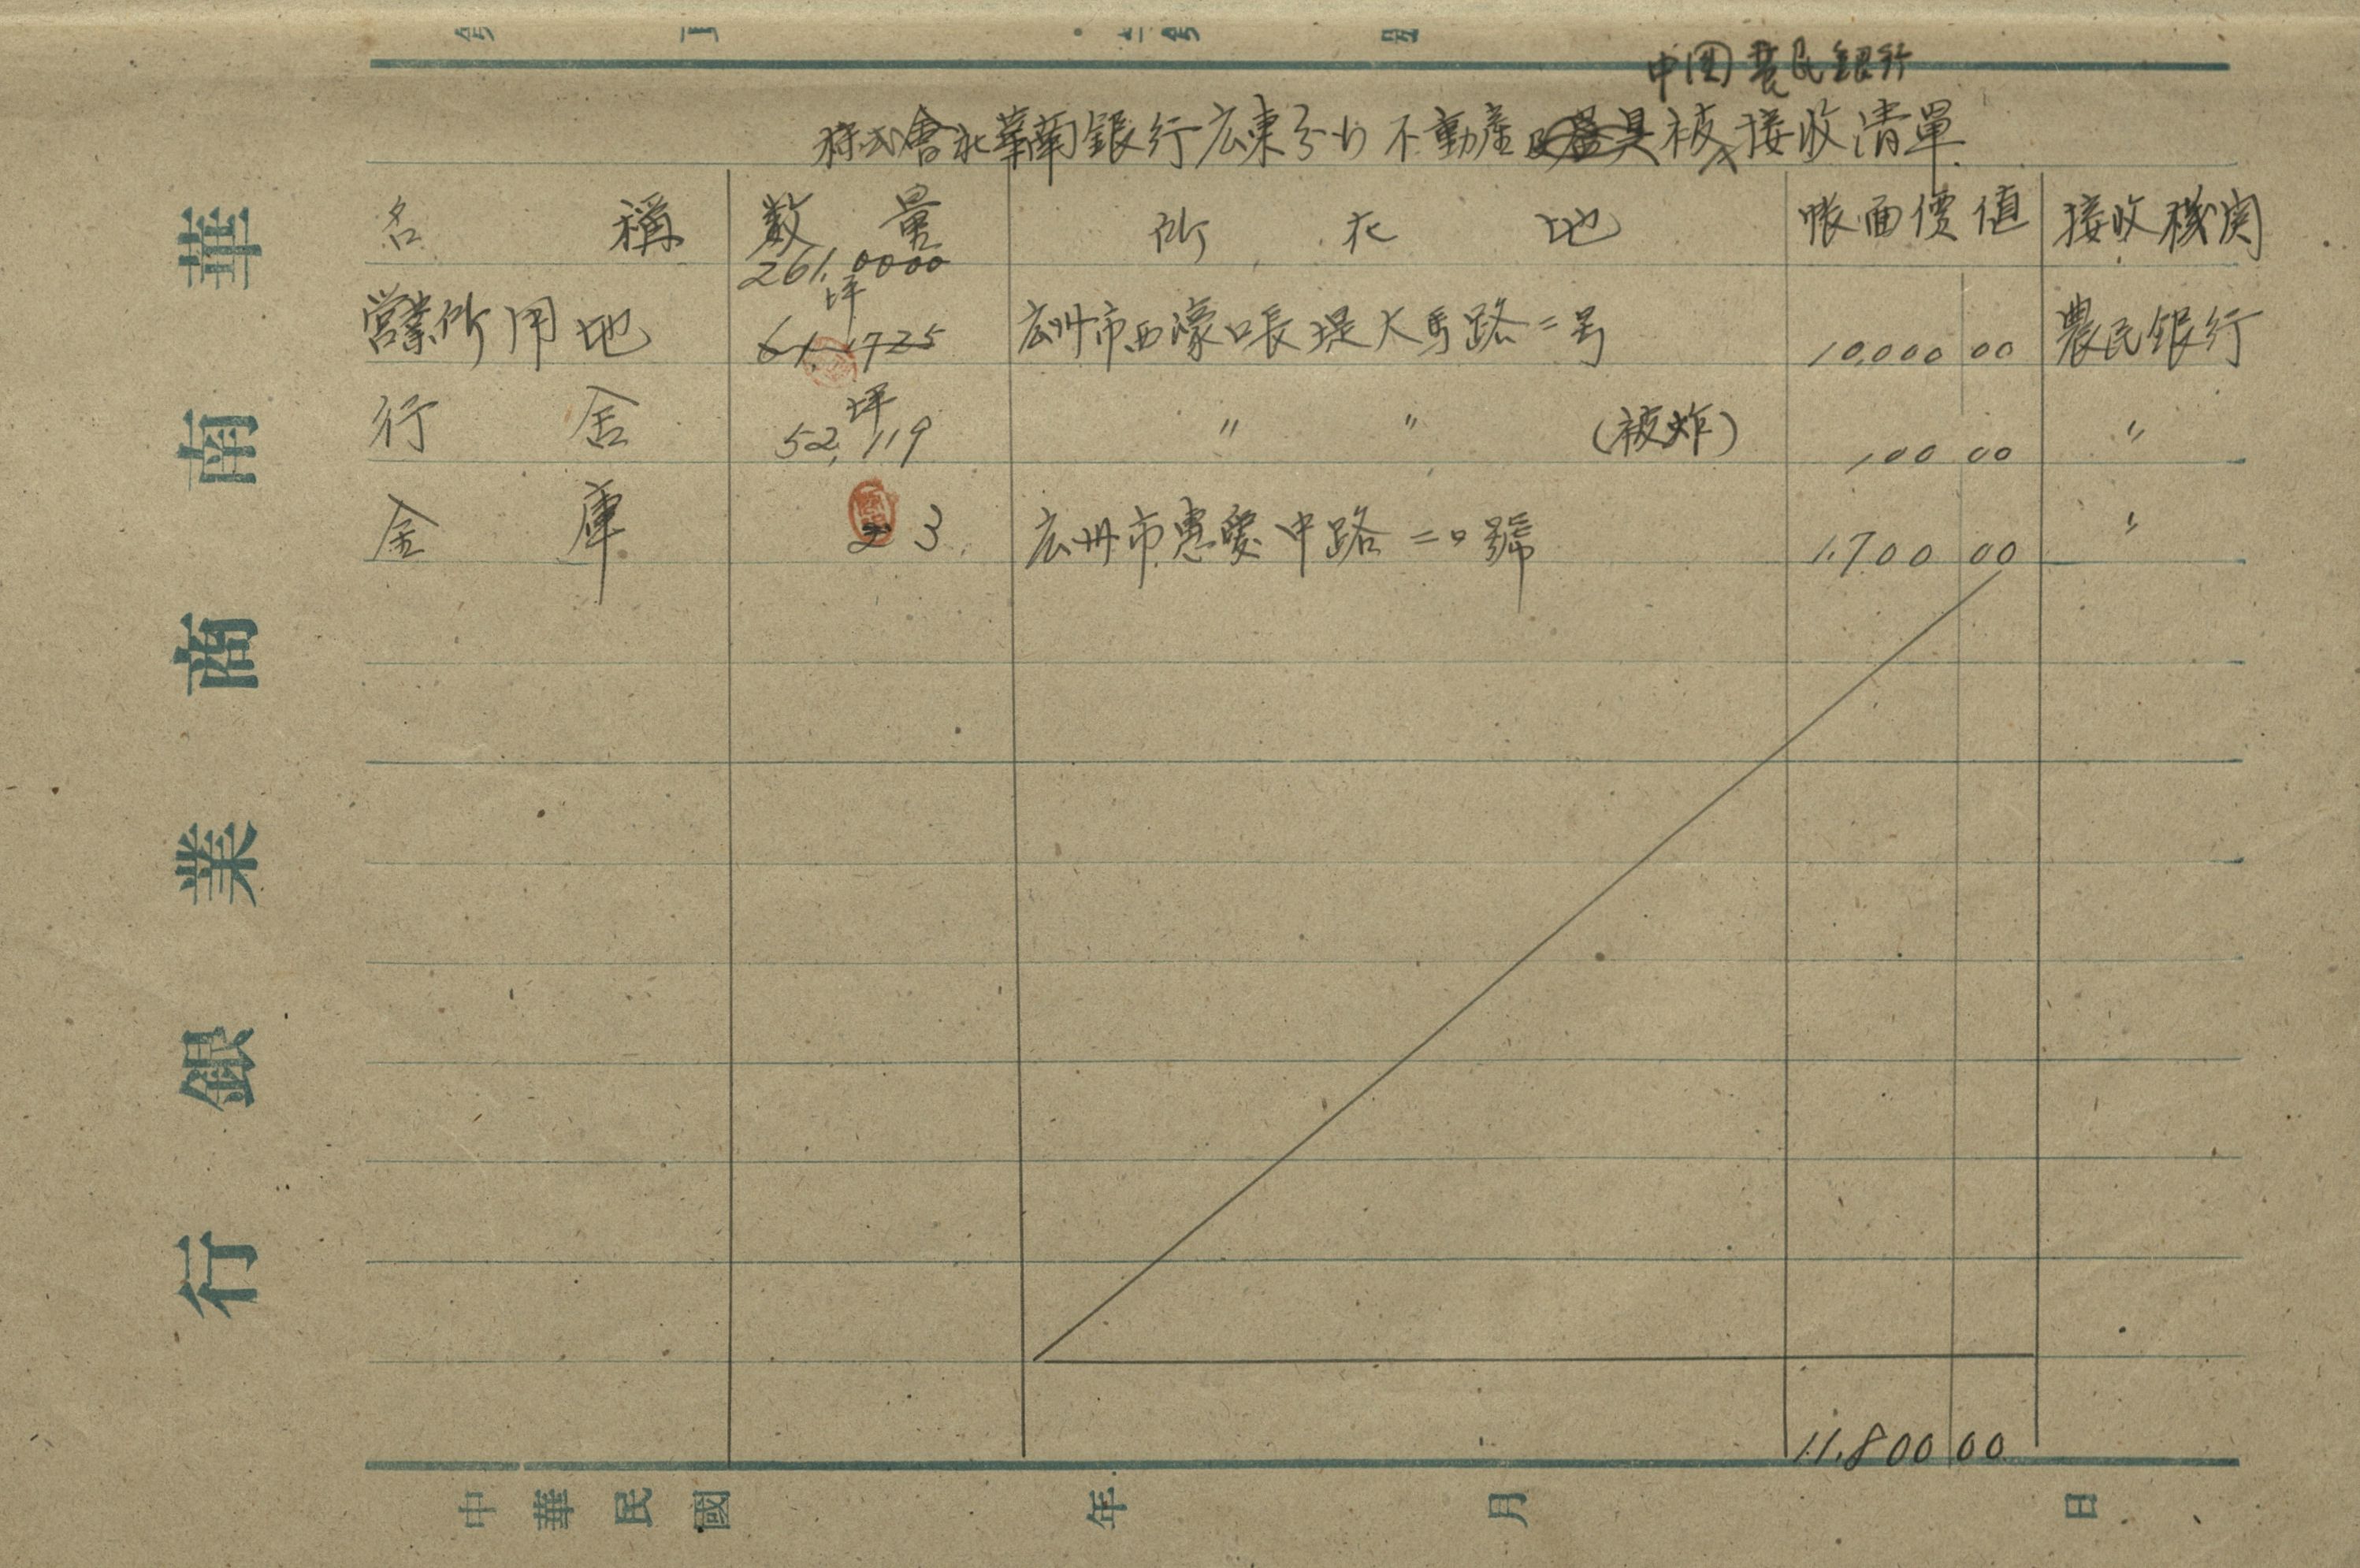 中国農民銀行
株式會社華南銀行広東支店不動産及器具被接收清單
名稱 数量 所在地 帳面價值 接收機関
261.0000坪
営業所用地 61.1725 広州市西濠口長堤大馬路二号 10,000 00 農民銀行
行舍 52.119坪 〃 〃 (被炸) 100 00 〃
金庫 2 3 広州市惠愛中路二〇號 1.700 00 〃
11.800 00
華南商業銀行
中華民國 年 月 日